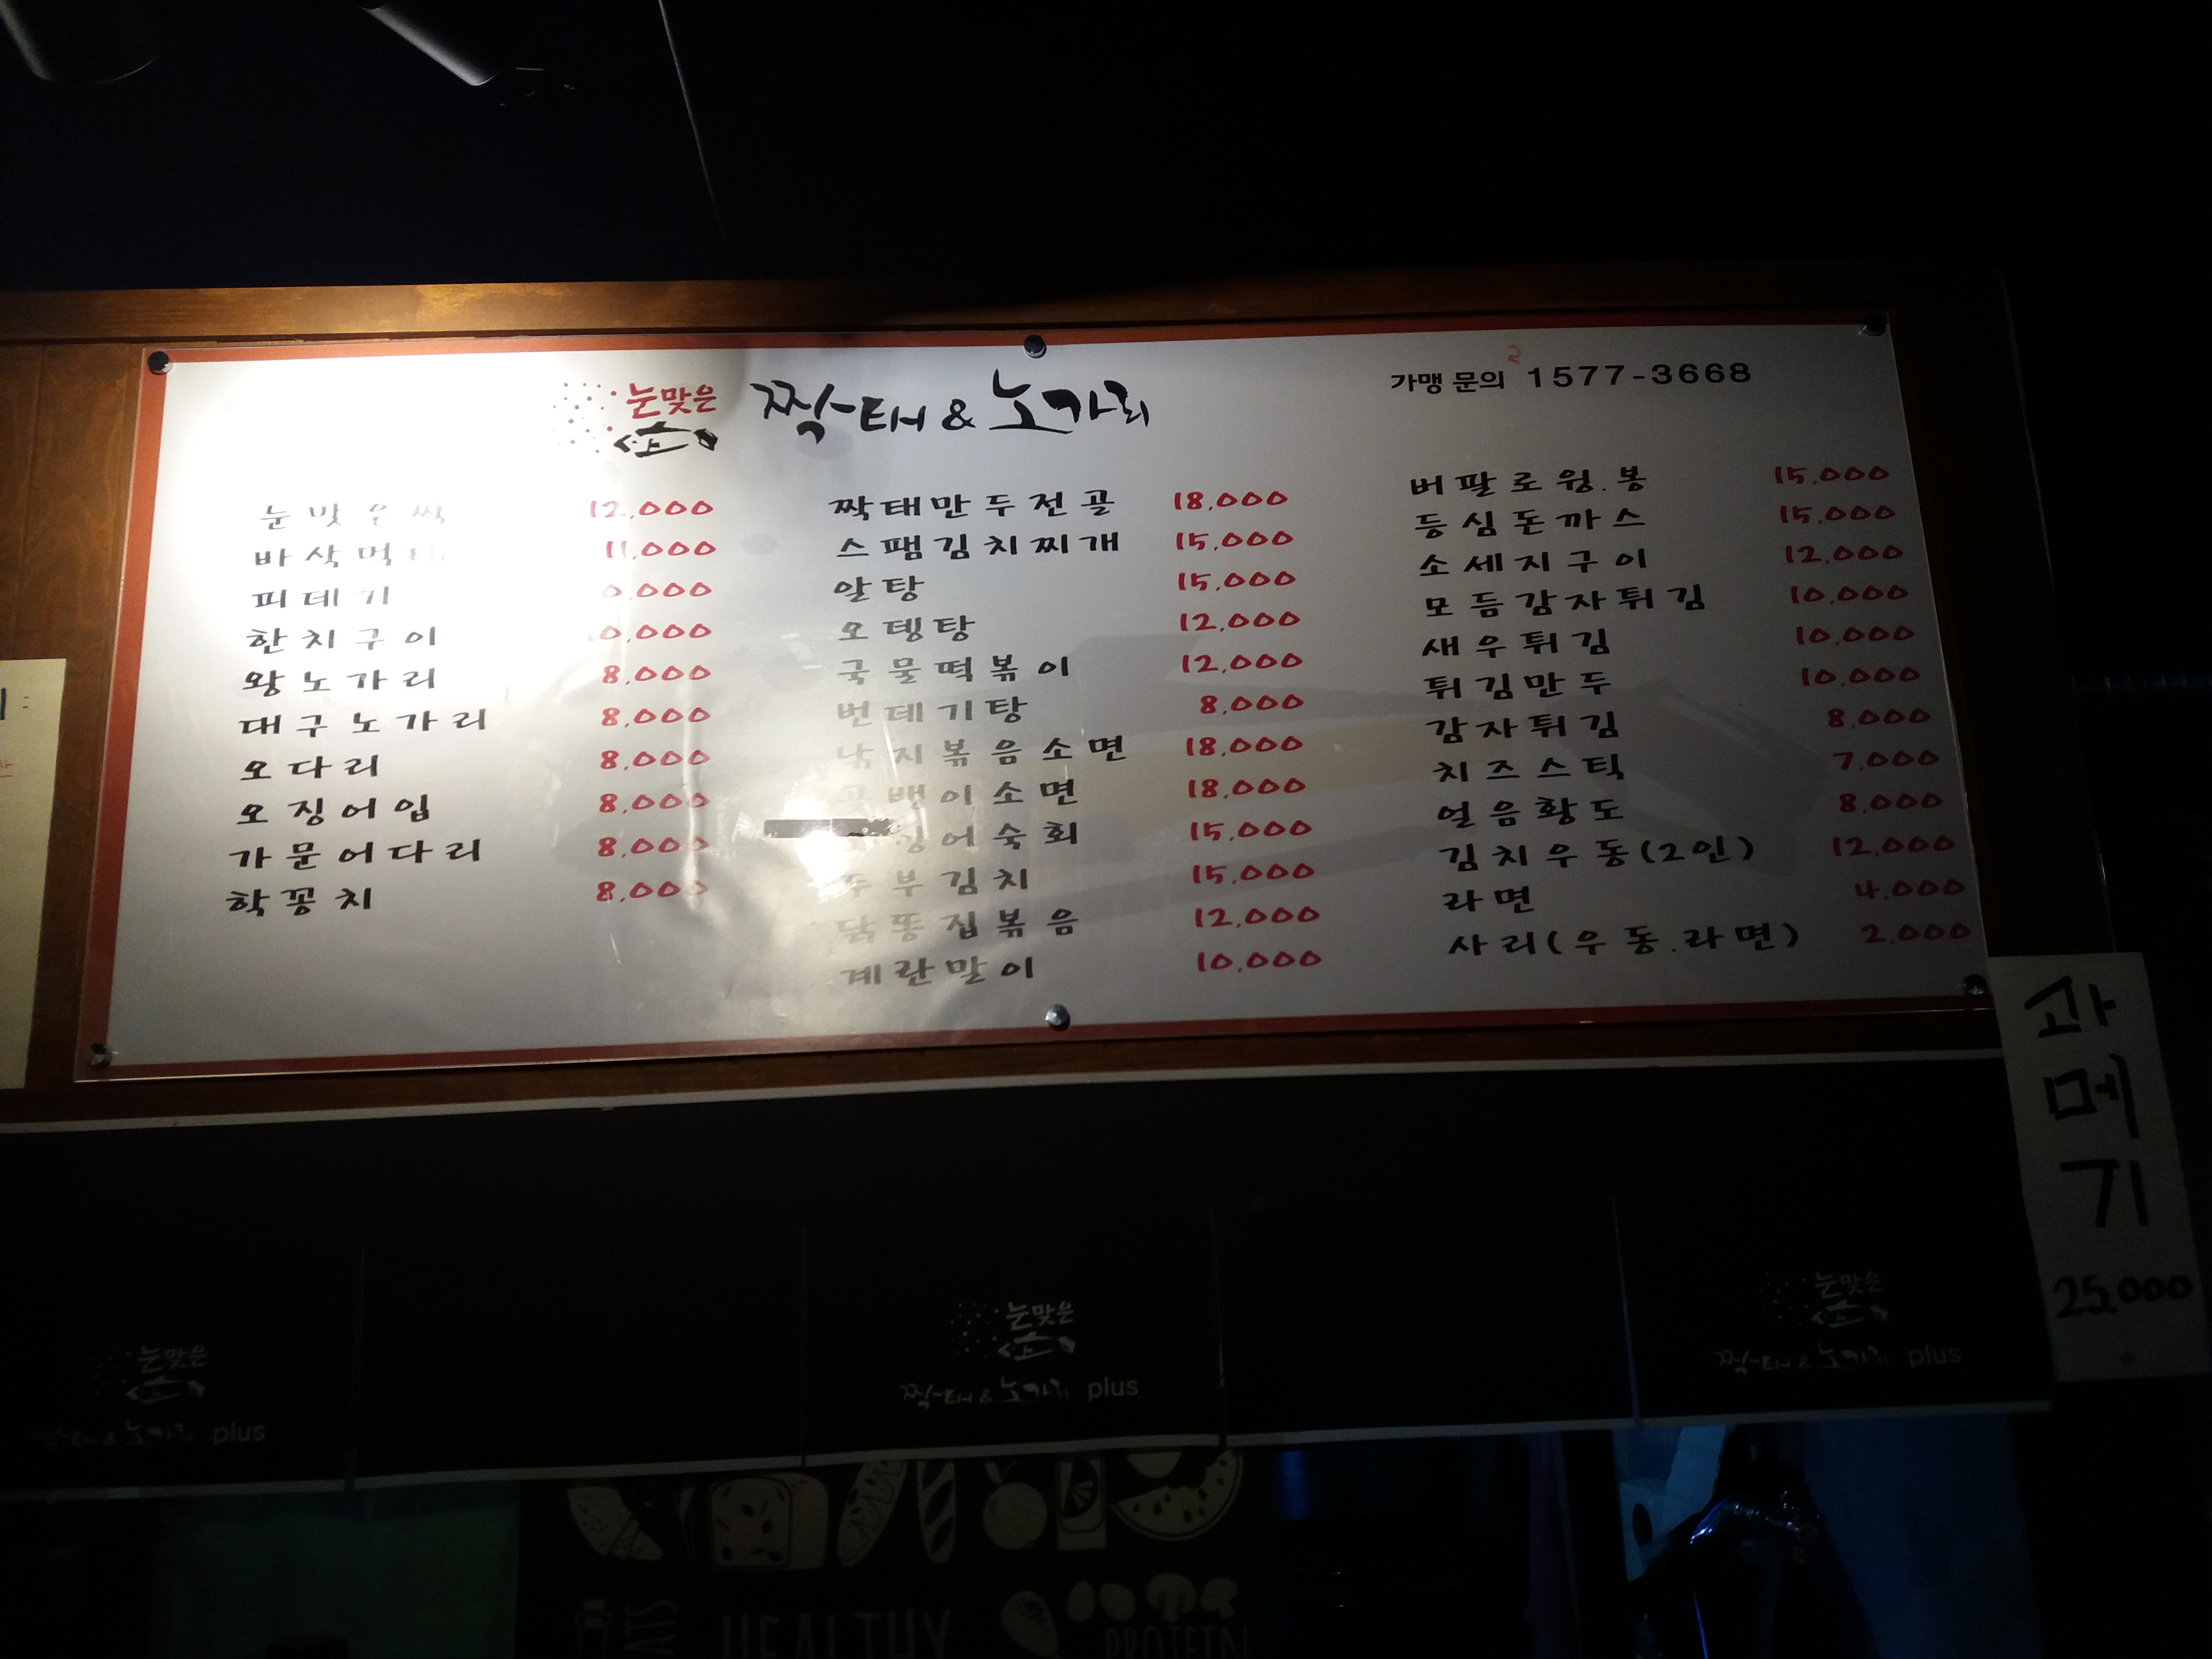 눈맞은
짝태 & 노가리
가맹 문의 1577-3668
눈맞 12,000
바삭먹태 11,000
피데기 0,000
한치구이 0,000
왕노가리 8,000
대구노가리 8,000
오다리 8,000
오징어입 8,000
가문어다리 8,000
학꽁치 8,000
짝태만두전골 18,000
스팸김치찌개 15,000
알탕 15,000
오뎅탕 12,000
국물떡볶이 12,000
번데기탕 8,000
낙지볶음소면 18,000
골뱅이소면 18,000
징어숙회 15,000
두부김치 15,000
닭똥집볶음 12,000
계란말이 10,000
버팔로윙.봉 15,000
등심돈까스 15,000
소세지구이 12,000
모듬감자튀김 10,000
새우튀김 10,000
튀김만두 10,000
감자튀김 8,000
치즈스틱 7,000
얼음황도 8,000
김치우동(2인) 12,000
라면 4,000
사리(우동.라면) 2,000
과메기
25.000
눈맞은
짝태 & 노가리 plus
눈맞은
짝태 & 노가리 plus
눈맞은
짝태 & 노가리 plus
HEALTHY
PROTEIN